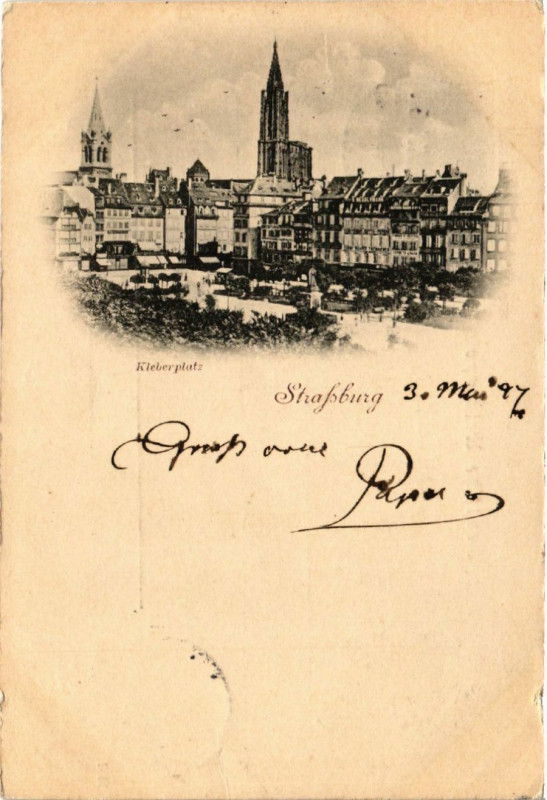 Kleberplatz
Straßburg 3. Mai 97
Gruß vom
Papa